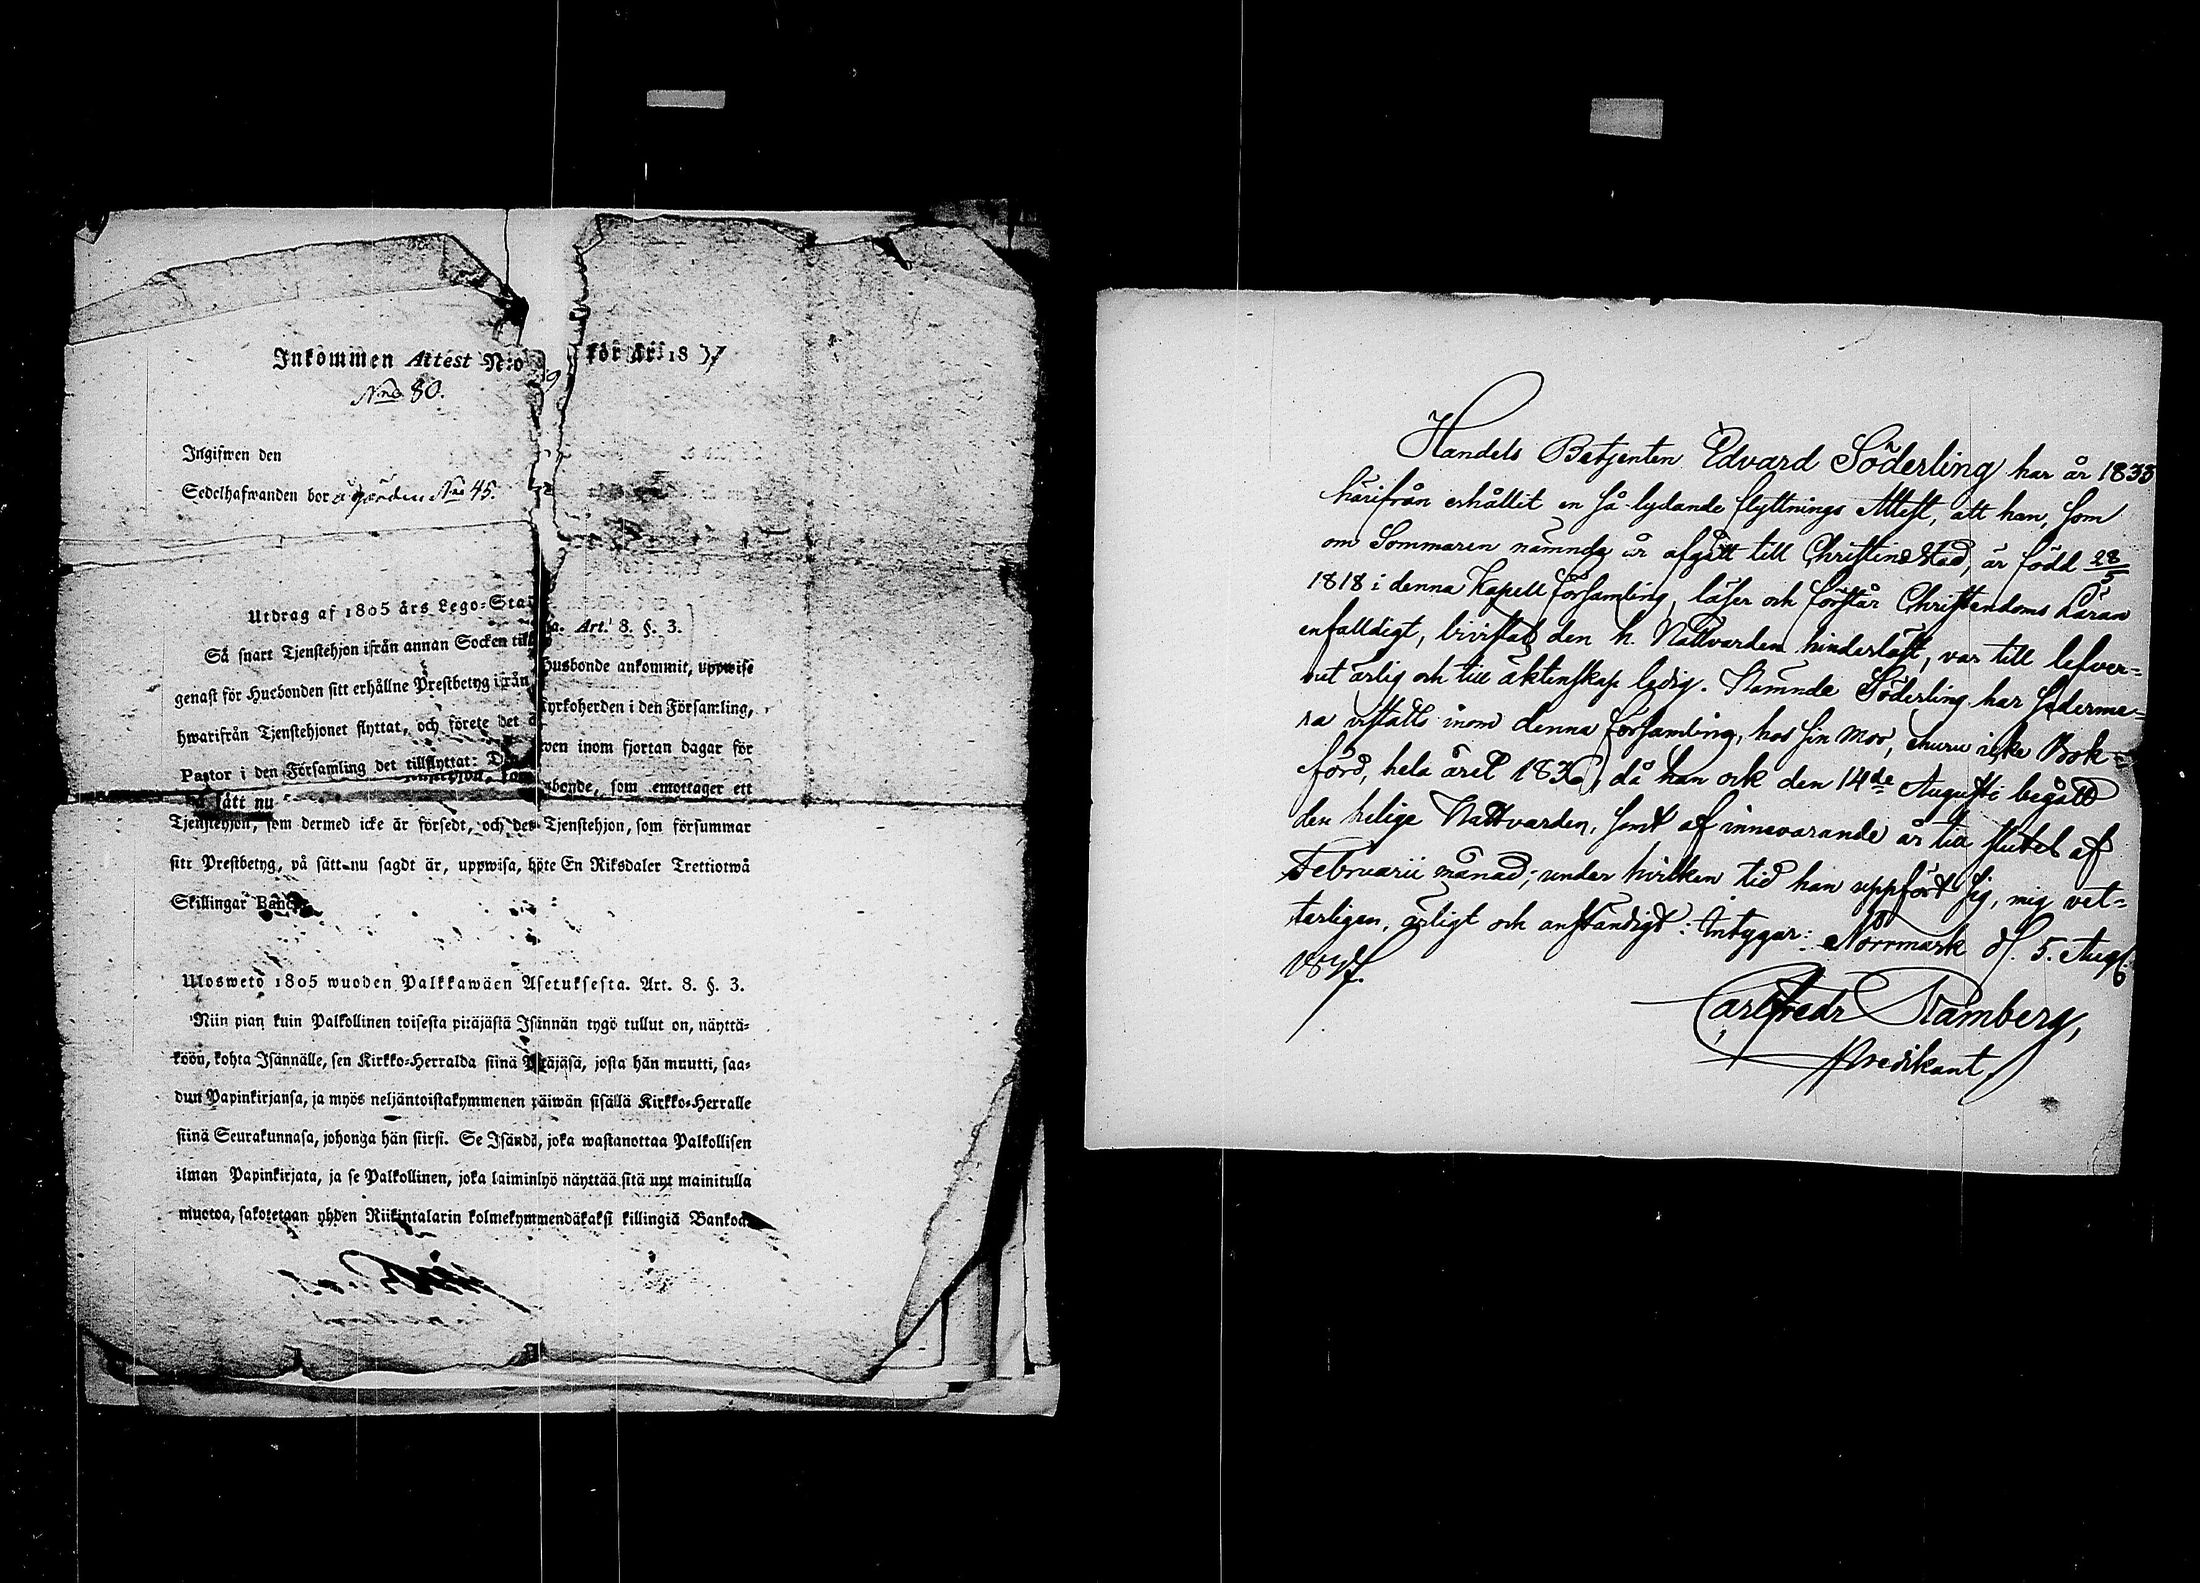 Inkommen Attest N:o för år 1837
Nno 80.
Ingifwen den
Sedelhafwanden bor å gården Nno 45.
Utdrag af 1805 års Lego-Sta a. Art. 8. §. 3.
Så snart Tjenstehjon ifrån annan Socken till Husbonde ankommit, uppwise
genast för Husbonden sitt erhållne Prestbetyg ifrån Kyrkoherden i den Församling,
hwarifrån Tjenstehjonet flyttat, och förete det ä wen inom fjortan dagar för
Pastor i den Församling det tillflyttat: D sbonde, som emottager ett
på sätt nu
Tjenstehjon, som dermed icke är försedt, och det Tjenstehjon, som försummar
sitt Prestbetyg, på sätt nu sagdt är, uppwisa, böte En Riksdaler Trettiotwå
Skillingar Banco.
Uloswetö 1805 wuoden Palkkawäen Asetuksesta. Art. 8. §. 3.
Niin pian kuin Palkollinen toisesta pitäjästä Isännän tygö tullut on, näyttä-
köön, kohta Isännälle, sen Kirkko-Herralda siinä Pitäjäsä, josta hän muutti, saa-
dun Papinkirjansa, ja myös neljäntoistakymmenen päiwän sisällä Kirkko-Herralle
siinä Seurakunnasa, johonga hän siirsi. Se Isändä, joka wastanottaa Palkollisen
ilman Papinkirjata, ja se Palkollinen, joka laiminlyö näyttää sitä nyt mainitulla
muotoa, sakotetaan yhden Riikintalarin kolmekymmendäkaksi killingiä Bankoa.
Handels Betjenten Edvard Söderling har år 1833
härifrån erhållit en så lydande flyttnings Attest, att han, som
om Sommaren nämnde år afgått till Christinestad, är född 28/5
1818 i denna Kapell församling, läser och förstår Christendoms Läran
enfalldigt, bivistat den h. Nattvarden hinderlöst, var till lefver-
net ärlig och till äktenskap ledig. Nämnde Söderling har sederme-
ra vistatts inom denna församling, hos sin Mor, ehuru icke Bok-
förd, hela året 1836, då han ock den 14de Augusti begått
den helige Nattvarden, samt af innevarande år till slutet af
Februarii månad; under hvilken tid han uppfört sig, mig vet-
terligen, ärligt och anständigt: Intygar: Norrmark d. 5. Aug.
1837.
Carl Fredr Stamberg,
Predikant.